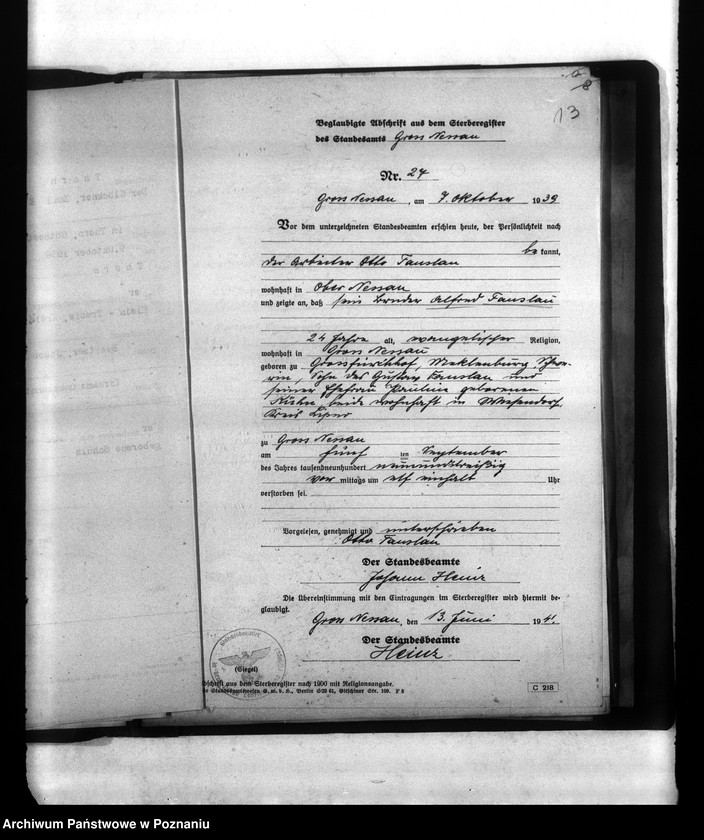 13
Beglaubigte Abschrift aus dem Sterberegister
des Standesamts Gross Nessau
Nr. 24
Gross Nessau, am 7. Oktober 1939
Vor dem unterzeichneten Standesbeamten erschien heute, der Persönlichkeit nach
bekannt,
der Arbeiter Otto Tanslau
wohnhaft in Ober Nessau
und zeigte an, daß sein Bruder Alfred Tanslau
24 Jahre alt, evangelischer Religion,
wohnhaft in Gross Nessau
geboren zu Mecklenburg Schwe-
rin, Sohn des Gustav Tanslau und
seiner Ehefrau Paulin geborenen
Kühn beide wohnhaft in
Kreis
zu Gross Nessau
am fünf ten September
des Jahres tausendneunhundert neununddreißig
vor mittags um elf einhalb Uhr
verstorben sei.
Vorgelesen, genehmigt und unterschrieben
Otto Tanslau
Der Standesbeamte
Johann Heinz
Die Übereinstimmung mit den Eintragungen im Sterberegister wird hiermit be-
glaubigt.
Gross Nessau, den 13. Juni 1941.
Der Standesbeamte
Heinz
(Siegel)
aus dem Sterberegister nach 1900 mit Religionsangabe.
G. m. b. H., Berlin SW 61, Gitschiner Str. 109.
C 218
Archiwum Państwowe w Poznaniu